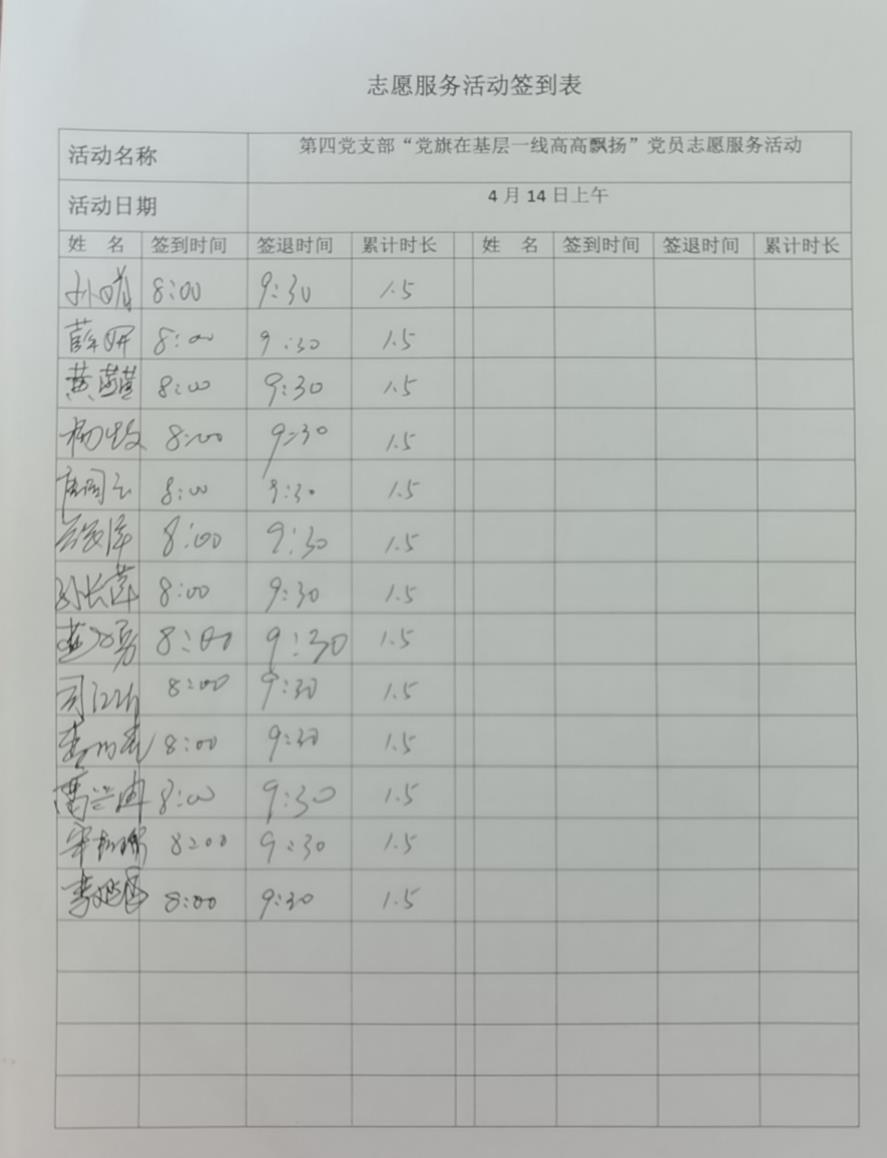 志愿服务活动签到表
活动名称 第四党支部“党旗在基层一线高高飘扬”党员志愿服务活动
活动日期 4月14日上午
姓 名 签到时间 签退时间 累计时长 姓 名 签到时间 签退时间 累计时长
孙晴 8:00 9:30 1.5
薛妍 8:00 9:30 1.5
黄 8:00 9:30 1.5
杨牧 8:00 9:30 1.5
8:00 9:30 1.5
8:00 9:30 1.5
孙长萍 8:00 9:30 1.5
8:00 9:30 1.5
司 8:00 9:30 1.5
李 8:00 9:30 1.5
8:00 9:30 1.5
宋 8:00 9:30 1.5
李 8:00 9:30 1.5